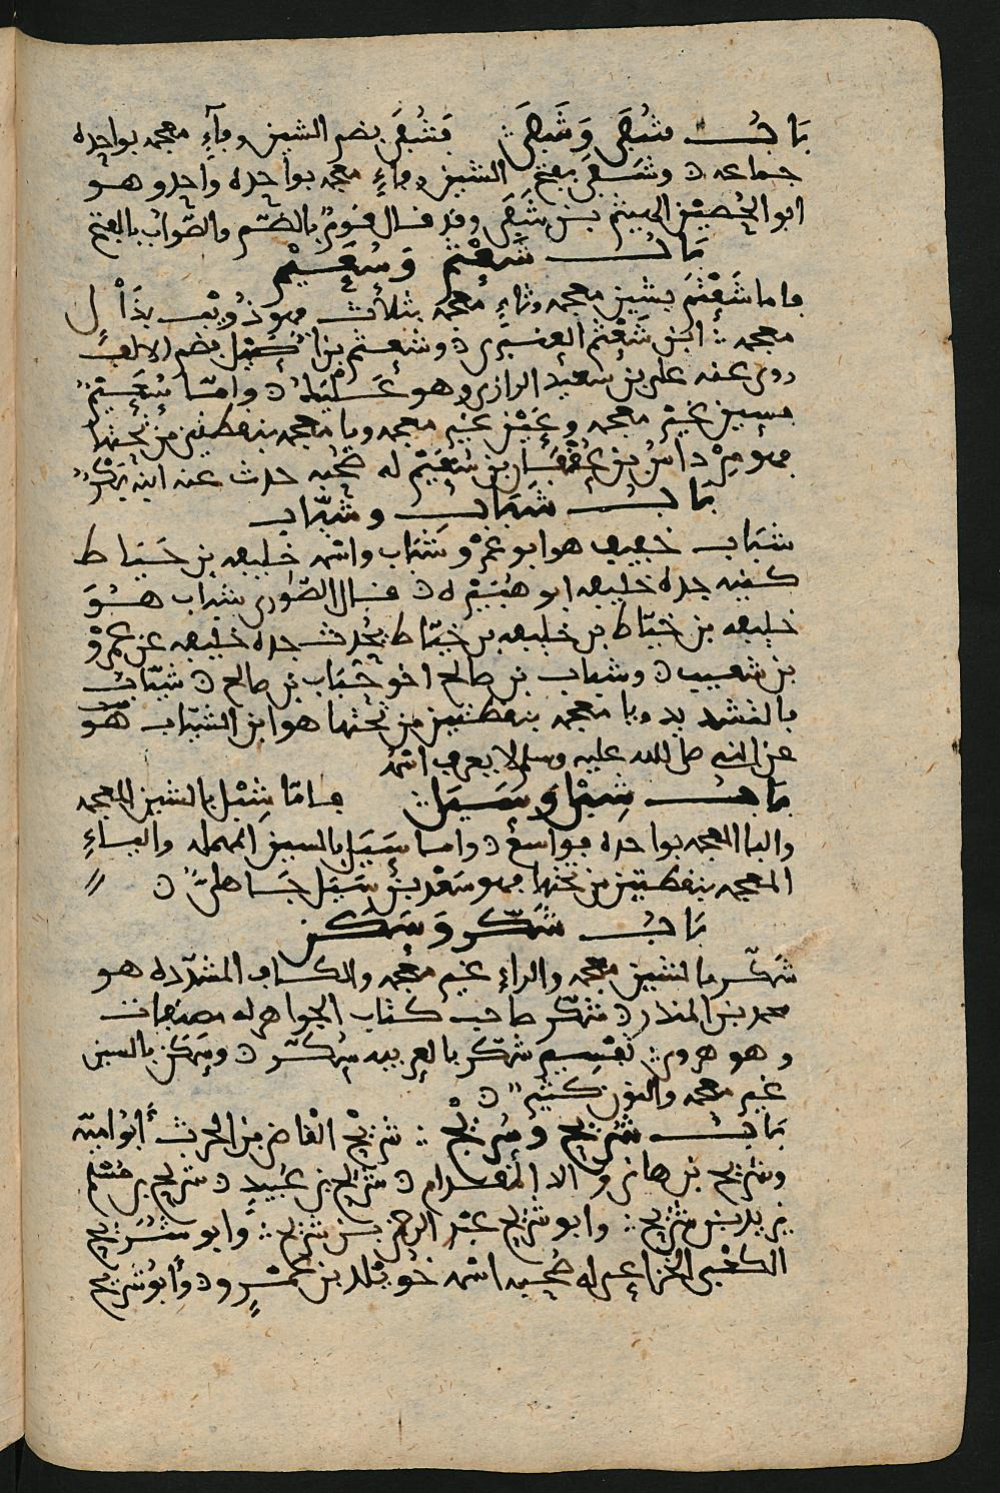 باب شُفَيّ وَشَفِيّ فشُفَيّ بضم الشين وفاءٍ معجمه بواحده
جماعه ٥ وشَفِيّ بفتح الشين وفاءٍ معجمه بواحده واحد وهو
ابو الحُصَيْن الهيثم بن شَفِيّ وقد قال قومٌ بالضّم والصّواب بالفتح
باب شَعْثَم وَسُعَيْم
فاما شَعْثَم بشين معجمه وثاءٍ معجمه بثلاث فهو ذُوَيْب بذال
معجمه ابن شَعْثَم العنبري ٥ وشعثم بن اصيل بضم الالف
روى عنه على بن سعيد الرازى وهو وامّا سُعَيْمٌ
فسين غير معجمه وعَيْن غير معجمه ويا معجمه بنقطتين من تحتها
فهو مِرْداسُ بن عُقْفَان بن سُعَيْم له صُحْبه حدث عنه ابنه بَكْرٌ
باب شَبَاب وشَيّاب
شبَاب خفيف هو ابو عَمْرو شَبَاب واسمه خليفه بن خَيّاط
كنيه جده خليفه ابو هُبَيْره ٥ قال الصّورى شباب هُوَ
خليفه بن خيّاط بن خليفه بن خيّاط يحُدث جده خليفه عن عمْرو
بن شعيب ٥ وشباب بن صالح اخو بن صالح ٥ شيّاب
بالتشديد ويا معجمه بنقطتين من تحتها هو ابن الشيّاب هو
عن النبى صلى الله عليه وسلم لا يعرف اسمه
باب شِبْل وَسَيَل فامّا شِبْل بالشين المعجمه
والبا المعجمه بواحده فواسع ٥ واما سَيَل بالسين المهمله والياءِ
المعجمه بنقطتين من تحتها فهو سَعْد بن سَيَل جَاهلىّ ٥
باب شَكّر وَسَكَن
شَكّر بالشين معجمه والراءِ غير معجمه والكاف المشدّده هو
محمد بن المنذر ٥ شكّر صاحب كتاب الجواهر له مصنفات
وهو هروى تفسير شكّر بالعربيه سُكّر ٥ وسَكَن بالسين
غير معجمه والنون كثيرٌ ٥
باب شُرَيْح وسُرَيْج شريْحُ القاضى بن الحرث أبو اميّه
وشريْح بن هانى والا المقدام ٥ شُريْح بن عُبَيْدٍ ٥ شريح بن مسْلم
يزيد بن شريْح وابو شريْح عبْد الرحمن بن شريْح وابو شُرَيْح
الكعْبى الخزاعى له صُحْبه اسمه خُوَيْلد بن عَمْرٍو ٥ وأبو شريْح